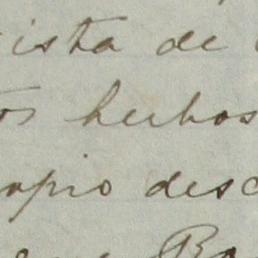 ista de
os herbos
apio desc
Ba